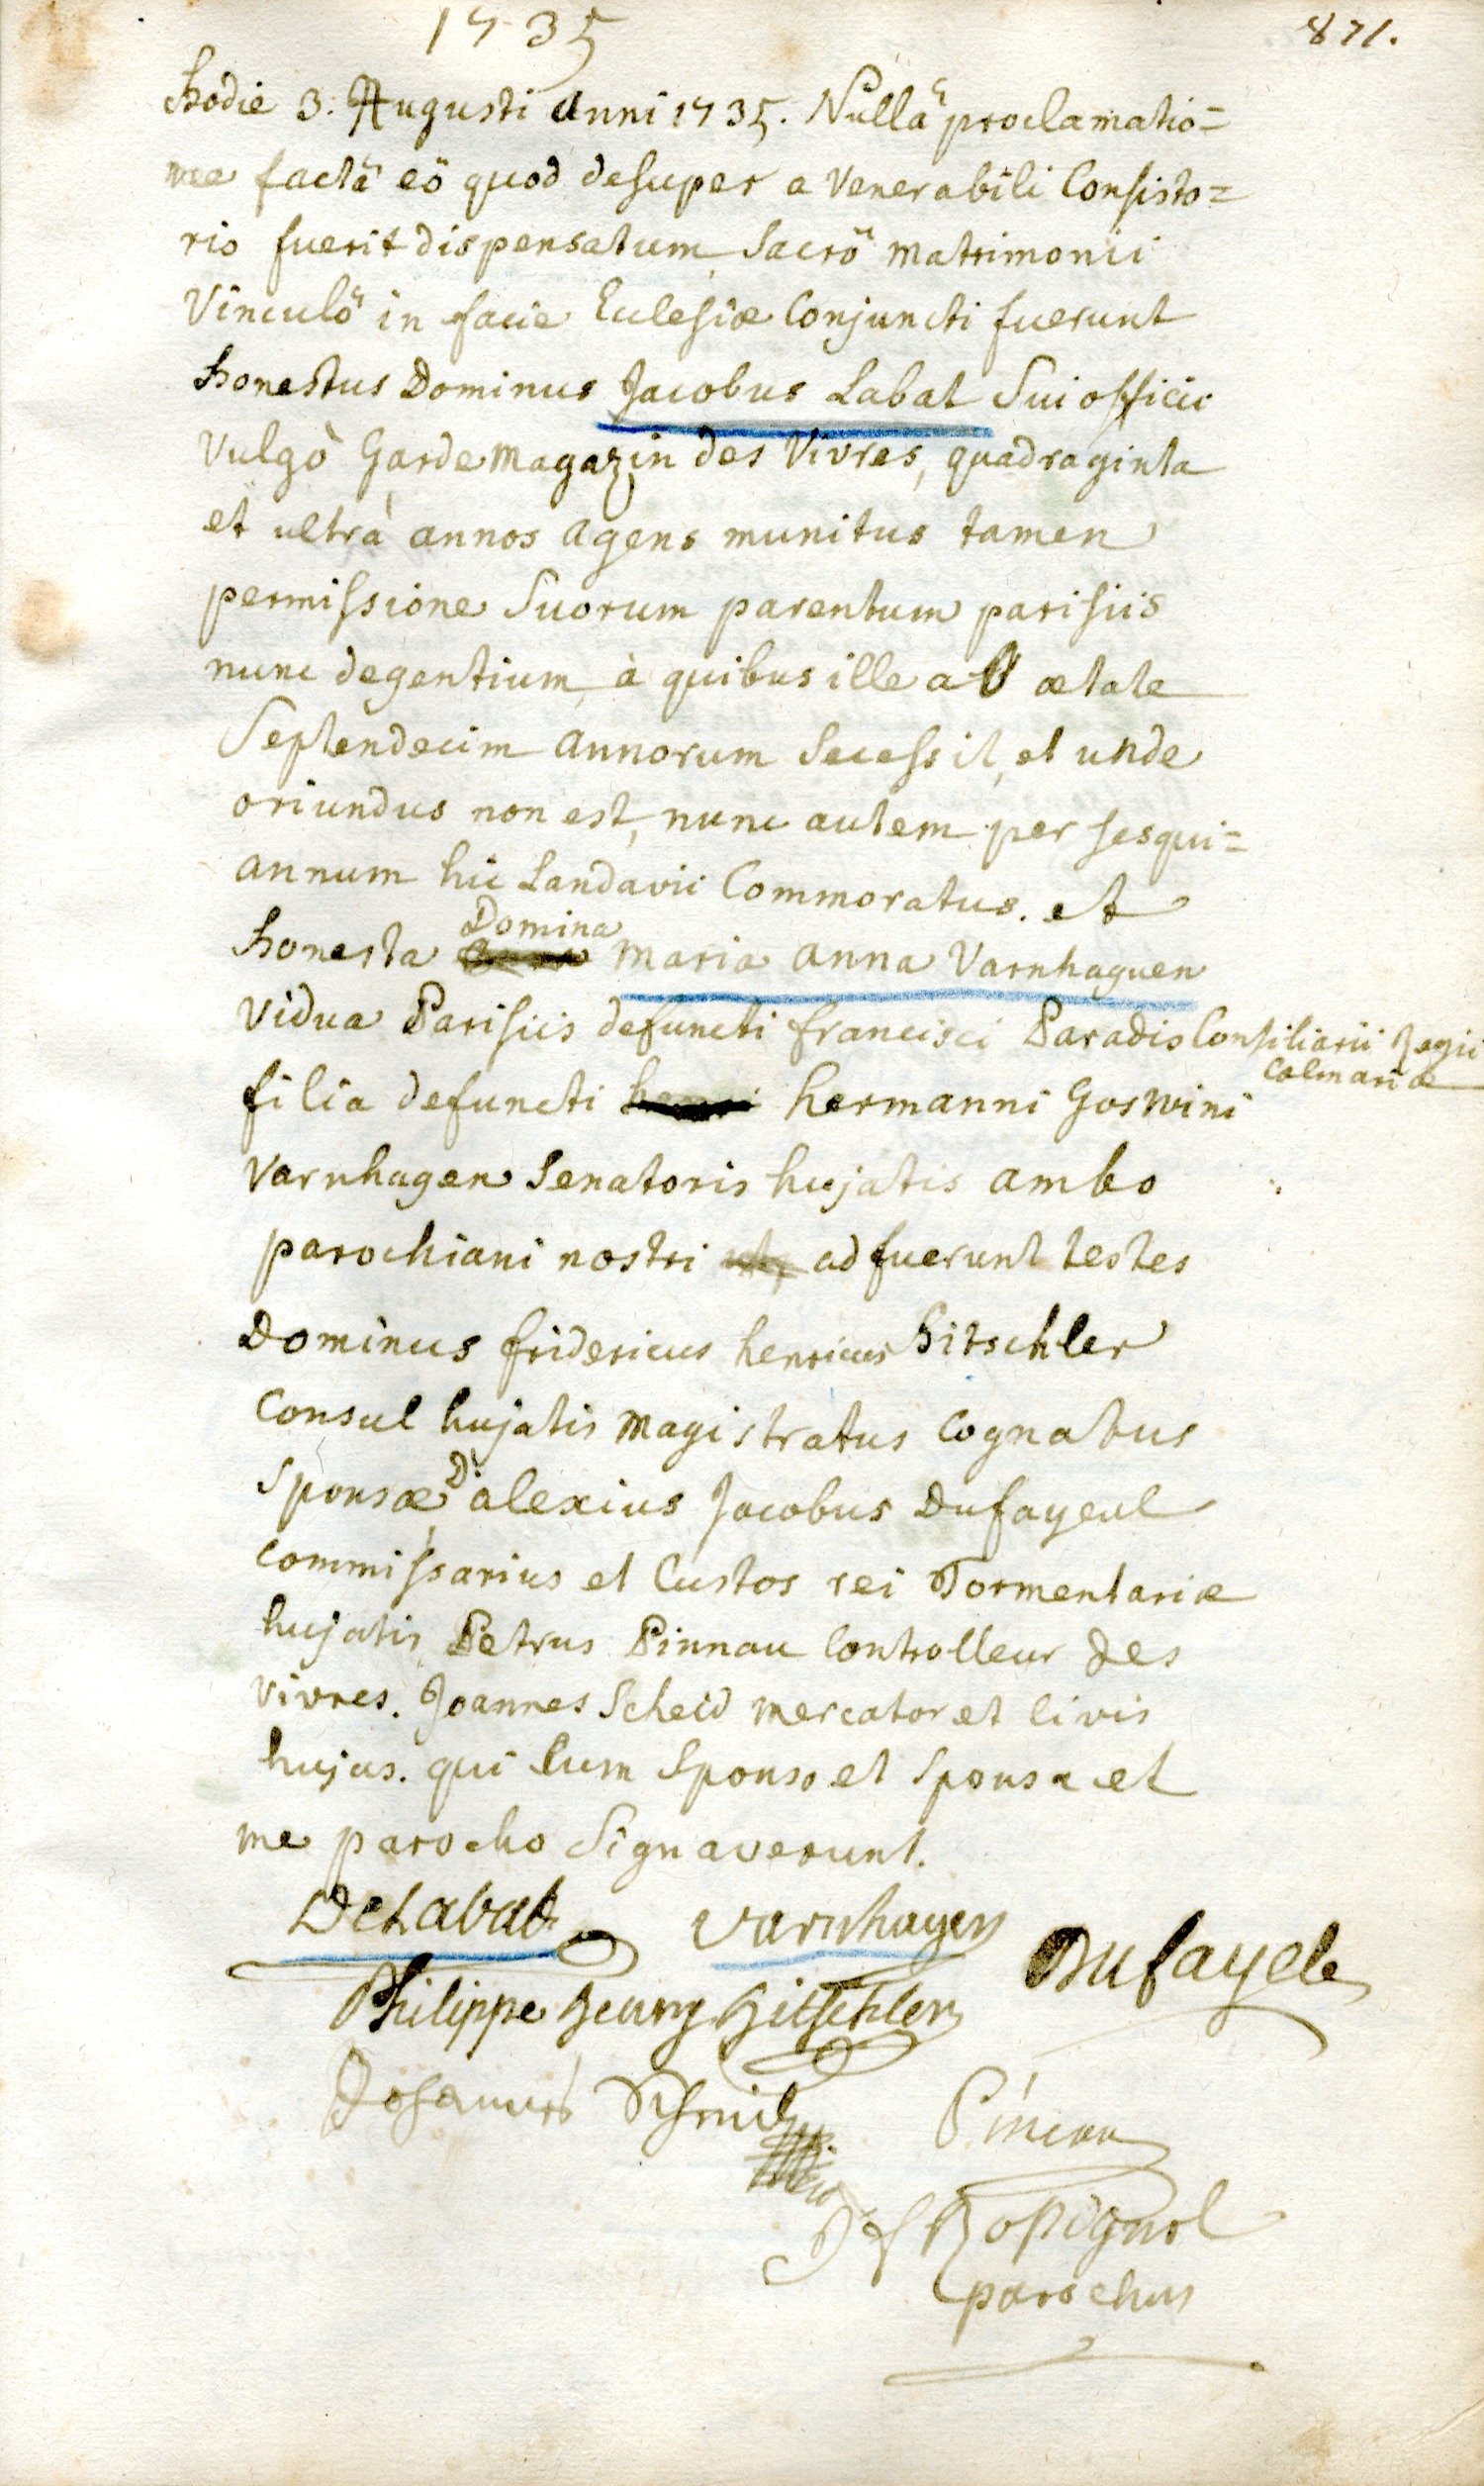 1735
871.
hodie 3. Augusti anni 1735. Nullâ proclamatio=
ne factâ eô quod desuper a Venerabili Consisto=
rio fuerit dispensatum, Sacrô matrimonii
Vinculô in facie Ecclesiæ Conjuncti fuerunt
honestus Dominus Jacobus Labat Sui officii
Vulgò Garde magazin des Vivres, quadraginta
et ultrà annos agens munitus tamen
permissione Suorum parentum parisiis
nunc degentium, à quibus ille ab ætate
Septendecim annorum Secessit, et unde
oriundus non est, nunc autem per sesqui=
annum hic Landavii Commoratus. et
Domina
honesta maria anna Varnhaguen
Vidua Parisiis defuncti francisci Paradis Consiliarii Regii
Colmariæ
filia defuncti hermanni Goswini
Varnhagen Senatoris hujatis ambo
parochiani nostri adfuerunt testes
Dominus fridericus henricus hitschler
Consul hujatis magistratus Cognatus
Sponsæ D: alexius Jacobus Dufayeul
Commissarius et Custos rei Tormentariæ
hujatis Petrus Pinnau Controlleur des
Vivres. Joannes Scheid mercator et Civis
hujus. qui Cum Sponso et Sponsa et
me parocho Signaverunt.
DeLabat Varnhagen
Dufayele
Philippe Georg Hitschler
Johannes Schmid
Pineau
Rossignol
parochus